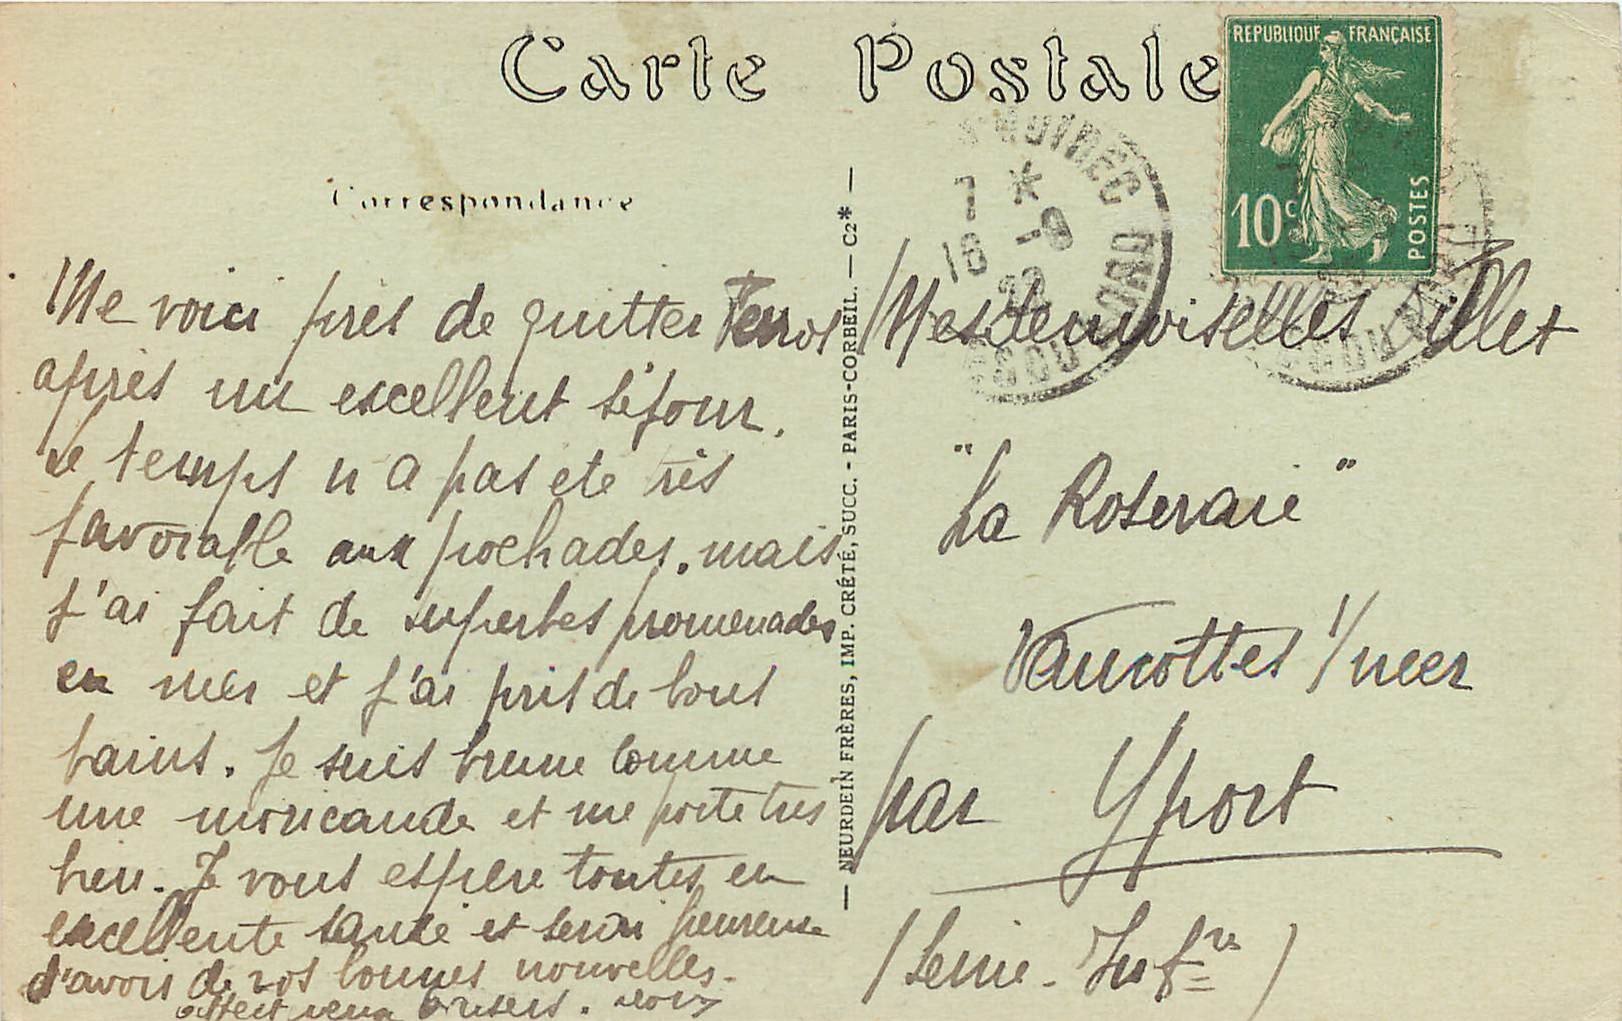 Carte Postale
REPUBLIQUE FRANÇAISE
10c
POSTES
Correspondance
Me voici près de quitter Perros
après un excellent séjour.
Le temps n a pas ete très
favorable aux pochades. mais
j'ai fait de superbes promenades
en mer et j'ai pris de bons
bains. Je suis brune comme
une moricaude et me porte tres
bien. Je vous espère toutes en
excellente santé et serai heureuse
d'avoir de vos bonnes nouvelles.
baisers.
NEURDEIN FRÈRES, IMP. CRÉTÉ, SUCC. - PARIS-CORBEIL. — C2*
7 *
16 -9
22
Mesdemoiselles Villet
"La Roseraie"
Vaucottes s/mer
par Yport
(Seine-Infre)